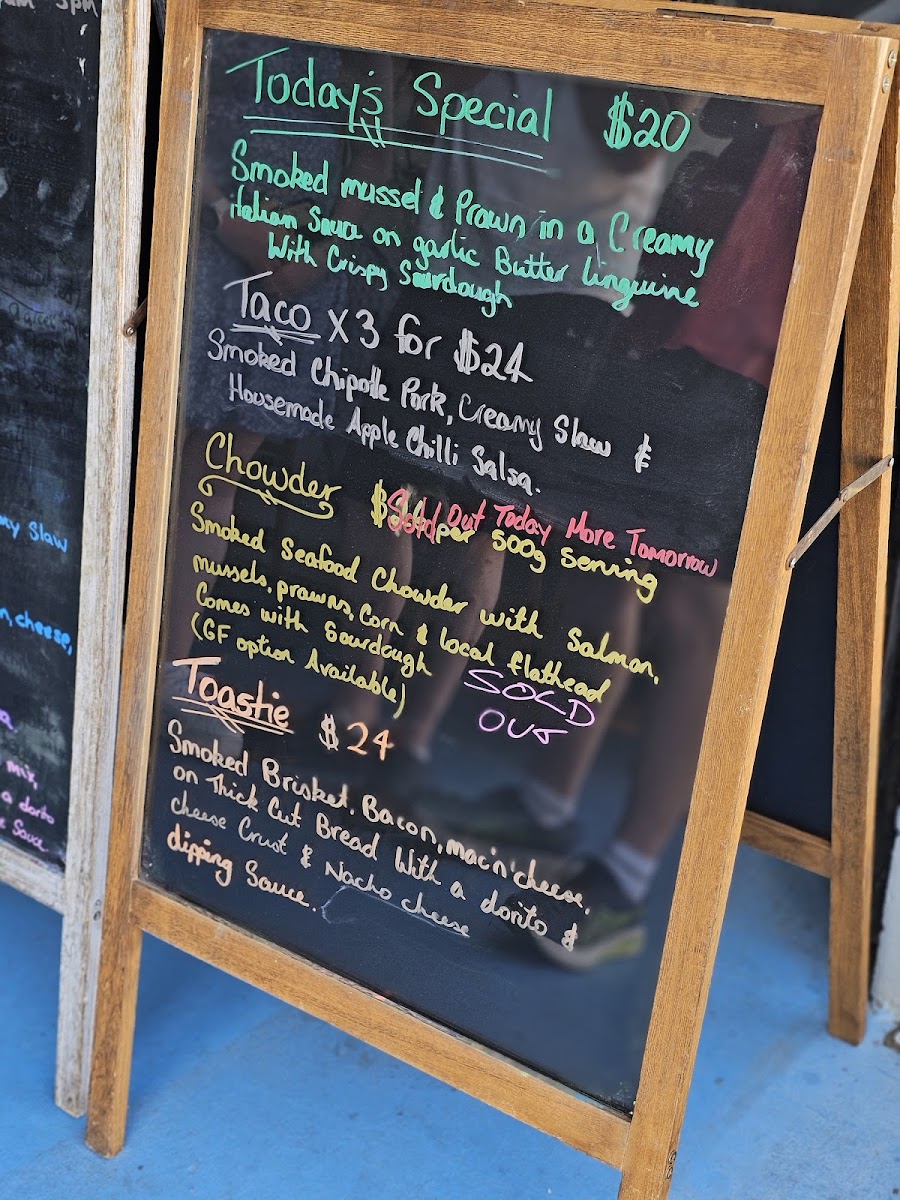 Today's Special $20
Smoked mussel & Prawn in a Creamy
italian Sauce on garlic Butter linguine
With Crispy Sourdough
Taco x3 for $24
Smoked Chipotle Pork, Creamy Slaw &
Housemade Apple Chilli Salsa.
Chowder
Sold Out Today More Tomorrow
per 500g Serving
Smoked Seafood Chowder with Salmon,
mussels, prawns, Corn & local flathead
Comes with Sourdough
(GF option Available)
SOLD
OUT
Toastie $24
Smoked Brisket, Bacon, mac'n'cheese,
on Thick Cut Bread With a dorito &
cheese Crust & Nacho cheese
dipping Sauce.
Slaw
cheese,
mix,
a dorito
Sauce